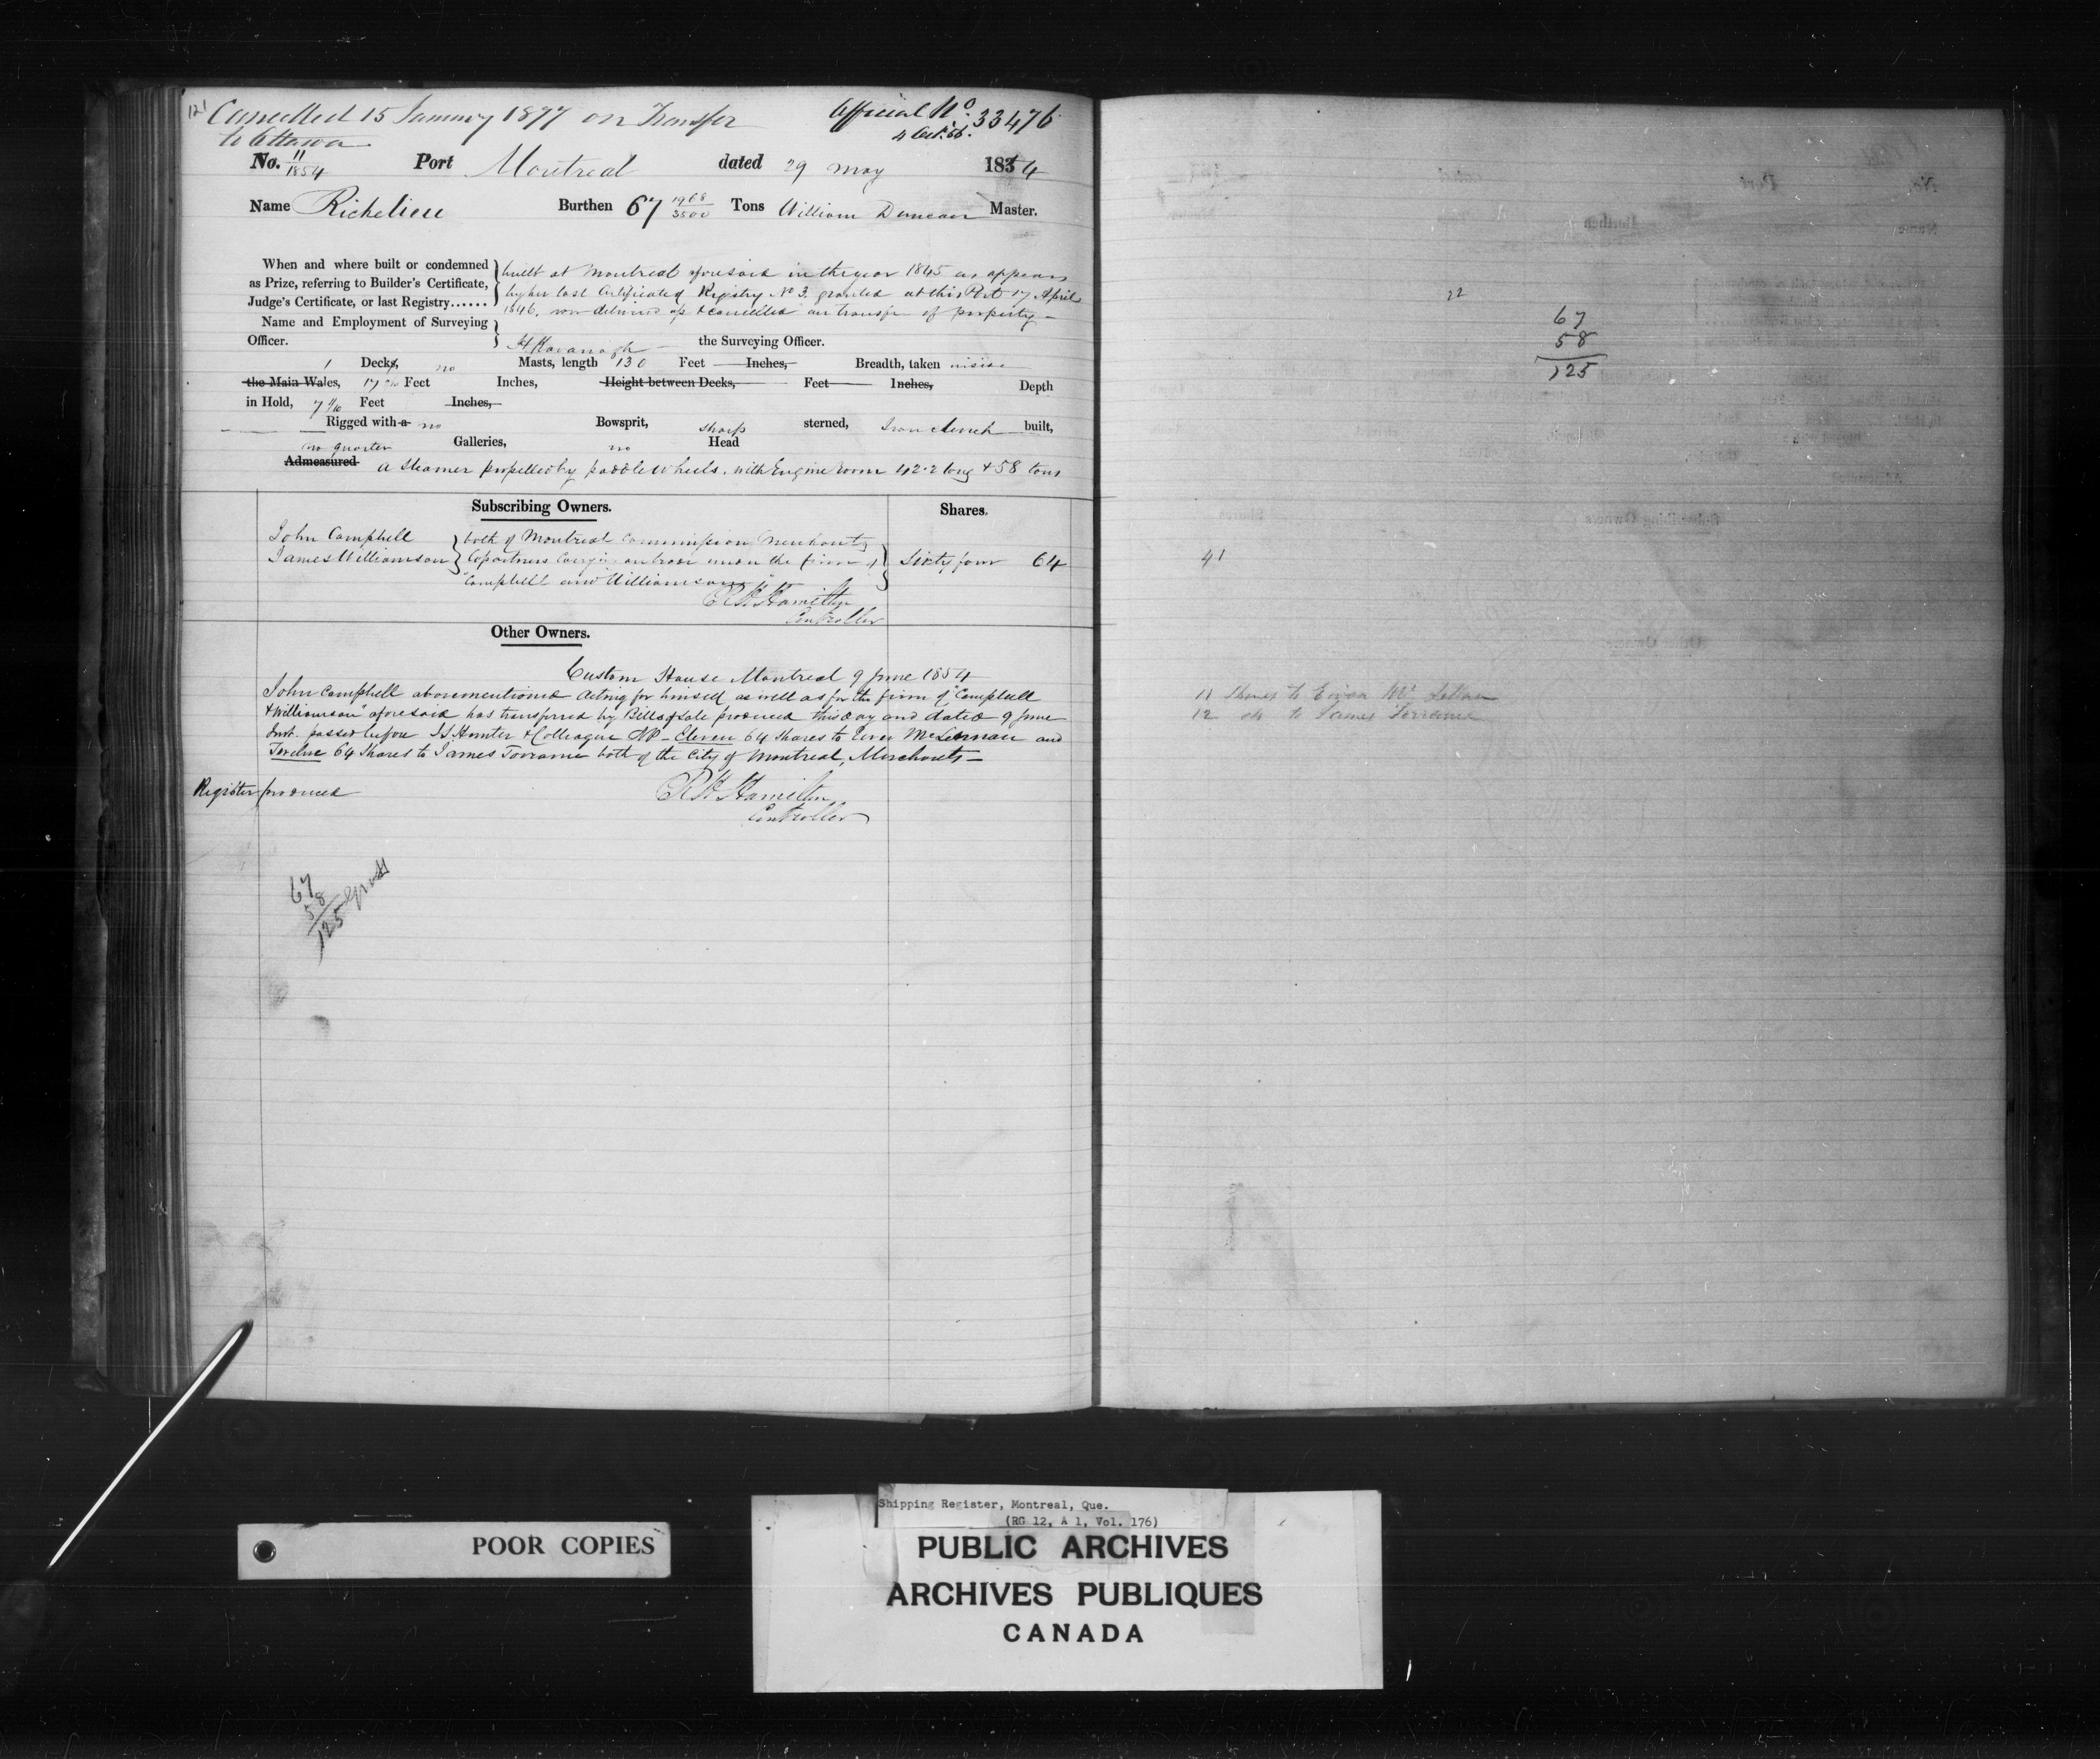 121 Cancelled 15 January 1877 on Transfer
to Ottawa
Official No. 33476
4 Oct. 56.
No. 11/1854 Port Montreal dated 29 May 1854
Name Richelieu Burthen 67 1968/3500 Tons William Duncan Master.
When and where built or condemned
as Prize, referring to Builder's Certificate,
Judge's Certificate, or last Registry......
built at Montreal aforesaid in the year 1845 as appears
by her last Certificate of Registry No 3. granted at this Port 17 April
1846, now delivered up & cancelled on transfer of property –
Name and Employment of Surveying
Officer. H Kavanagh the Surveying Officer.
1 Decks, no Masts, length 130 Feet Inches, Breadth, taken inside
the Main Wales, 17 Feet Inches, Height between Decks, Feet Inches, Depth
in Hold, 7 Feet Inches,
Rigged with a no Bowsprit, sharp sterned, Iron clench built,
no quarter Galleries, no Head
Admeasured a Steamer propelled by paddle wheels, with Engine room 42.2 long & 58 tons
Subscribing Owners. Shares.
John Campbell
James Williamson
both of Montreal Commission Merchants
Copartners carrying on trade under the firm of
"Campbell and Williamson"
Sixty four 64
R H Hamilton
Controller
Other Owners.
Custom House Montreal 9 June 1854
John Campbell abovementioned acting for himself as well as for the firm of "Campbell
& Williamson" aforesaid has transferred by Bill of Sale produced this day and dated 9 June
Inst. passed before J S Hunter & Colleague NP – Eleven 64 Shares to Ewen McLennan and
Twelve 64 Shares to James Torrance both of the City of Montreal, Merchants –
Register produced
R H Hamilton
Controller
67
58
125 Gross
22
67
58
125
41
11 Shares to Ewen McLennan
12 do to James Torrance
POOR COPIES
Shipping Register, Montreal, Que.
(RG 12, A 1, Vol. 176)
PUBLIC ARCHIVES
ARCHIVES PUBLIQUES
CANADA